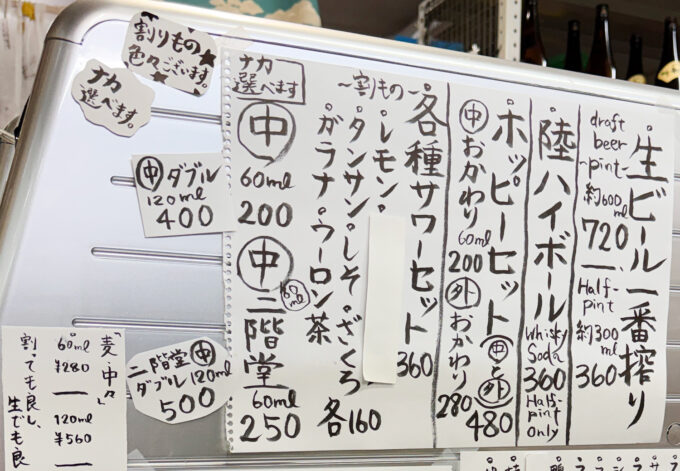 割りもの
色々ございます。
ナカ
選べます。
生ビール一番搾り
draft
beer
-pint-
約600ml
720
Half-
pint
約300ml
360
陸ハイボール
Whisky
Soda
360
Half-
pint
only
ホッピーセット
中と外
480
中おかわり
60ml
200
外おかわり
280
各種サワーセット
360
〜割もの〜
・レモン・
・タンサン・しそ・ざくろ
ガラナ・ウーロン茶
各160
ナカ
選べます
中
60ml
200
中二階堂
60ml
60ml
250
中ダブル
120ml
400
二階堂中
ダブル120ml
500
「麦・中々」
60ml
¥280
120ml
¥560
割っても良し、
生でも良